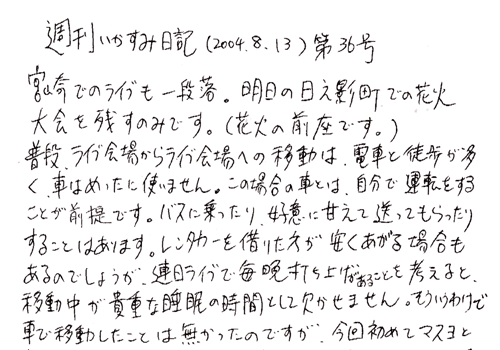 週刊いかすみ日記(2004.8.13)第36号
宮崎でのライブも一段落。明日の日之影町での花火
大会を残すのみです。(花火の前座です。)
普段、ライブ会場からライブ会場への移動は、電車と徒歩が多
く、車はめったに使いません。この場合の車とは、自分で運転をする
ことが前提です。バスに乗ったり、好意に甘えて送ってもらったり
することはあります。レンタカーを借りた方が安くあがる場合も
あるのでしょうが、連日ライブで毎晩打ち上げがあることを考えると、
移動中が貴重な睡眠の時間として欠かせません。そういうわけで
車で移動したことは無かったのですが、今回初めてマスヨと